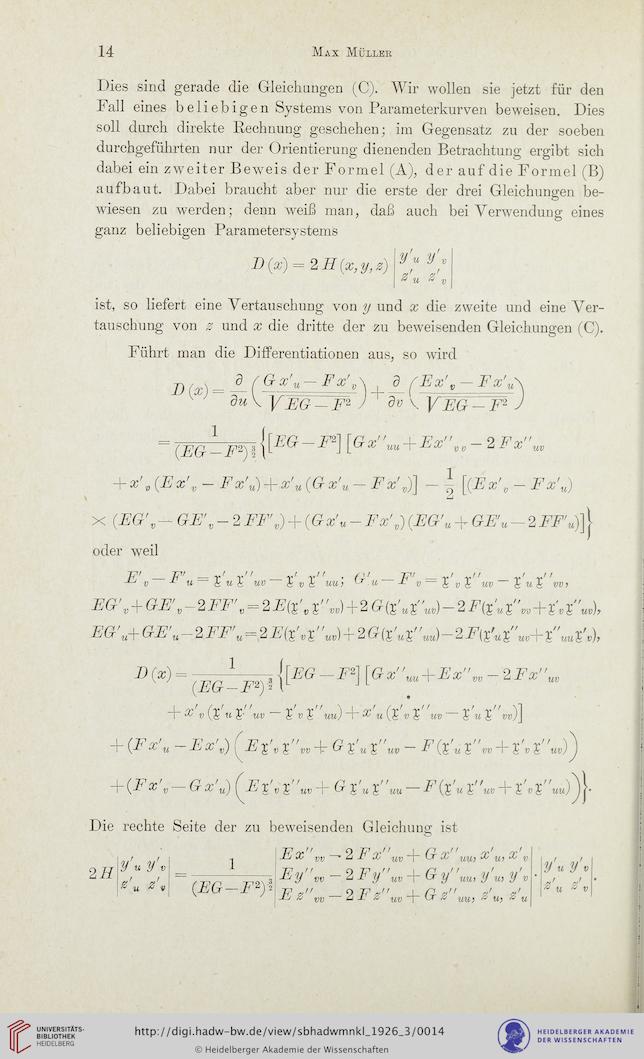 14 MAX MÜLLER
Dies sind gerade die Gleichungen (C). Wir wollen sie jetzt für den
Fall eines beliebigen Systems von Parameterkurven beweisen. Dies
soll durch direkte Rechnung geschehen; im Gegensatz zu der soeben
durchgeführten nur der Orientierung dienenden Betrachtung ergibt sich
dabei ein zweiter Beweis der Formel (A), der auf die Formel (B)
aufbaut. Dabei braucht aber nur die erste der drei Gleichungen be-
wiesen zu werden; denn weiß man, daß auch bei Verwendung eines
ganz beliebigen Parametersystems
D(x) = 2 H(x, y, z) | y'_u y'_v ; z'_u z'_v |
ist, so liefert eine Vertauschung von y und x die zweite und eine Ver-
tauschung von z und x die dritte der zu beweisenden Gleichungen (C).
Führt man die Differentiationen aus, so wird
D(x) = ∂/∂u ( (G x'_u — F x'_v) / √(EG — F²) ) + ∂/∂v ( (E x'_v — F x'_u) / √(EG — F²) )
= 1/(EG — F²)^{3/2} { [EG — F²] [G x''_{uu} + E x''_{vv} — 2 F x''_{uv}
+ x'_v (E x'_v — F x'_u) + x'_u (G x'_u — F x'_v)] — 1/2 [(E x'_v — F x'_u)
× (EG'_v — GE'_v — 2 FF'_v) + (G x'_u — F x'_v) (EG'_u + GE'_u — 2 FF'_u)] }
oder weil
E'_v — F'_u = 𝔵'_u 𝔵''_{uv} — 𝔵'_v 𝔵''_{uu}; G'_u — F'_v = 𝔵'_v 𝔵''_{uv} — 𝔵'_u 𝔵''_{vv},
EG'_v + GE'_v — 2 FF'_v = 2 E(𝔵'_v 𝔵''_{vv}) + 2 G(𝔵'_u 𝔵''_{uv}) — 2 F(𝔵'_u 𝔵''_{vv} + 𝔵'_v 𝔵''_{uv}),
EG'_u + GE'_u — 2 FF'_u = 2 E(𝔵'_v 𝔵''_{uv}) + 2 G(𝔵'_u 𝔵''_{uu}) — 2 F(𝔵'_u 𝔵''_{uv} + 𝔵''_{uu} 𝔵'_v),
D(x) = 1/(EG — F²)^{3/2} { [EG — F²] [G x''_{uu} + E x''_{vv} — 2 F x''_{uv}
+ x'_v (𝔵'_u 𝔵''_{uv} — 𝔵'_v 𝔵''_{uu}) + x'_u (𝔵'_v 𝔵''_{uv} — 𝔵'_u 𝔵''_{vv})]
+ (F x'_u — E x'_v) ( E 𝔵'_v 𝔵''_{vv} + G 𝔵'_u 𝔵''_{uv} — F (𝔵'_u 𝔵''_{vv} + 𝔵'_v 𝔵''_{uv}) )
+ (F x'_v — G x'_u) ( E 𝔵'_v 𝔵''_{uv} + G 𝔵'_u 𝔵''_{uu} — F (𝔵'_u 𝔵''_{uv} + 𝔵'_v 𝔵''_{uu}) ) }.
Die rechte Seite der zu beweisenden Gleichung ist
2 H | y'_u y'_v ; z'_u z'_v | = 1/(EG — F²)^{3/2} | E x''_{vv} — 2 F x''_{uv} + G x''_{uu}, x'_u, x'_v ; E y''_{vv} — 2 F y''_{uv} + G y''_{uu}, y'_u, y'_v ; E z''_{vv} — 2 F z''_{uv} + G z''_{uu}, z'_u, z'_u | · | y'_u y'_v ; z'_u z'_v |.
UNIVERSITÄTS-
BIBLIOTHEK
HEIDELBERG
http://digi.hadw-bw.de/view/sbhadwmnkl_1926_3/0014
© Heidelberger Akademie der Wissenschaften
HEIDELBERGER AKADEMIE
DER WISSENSCHAFTEN